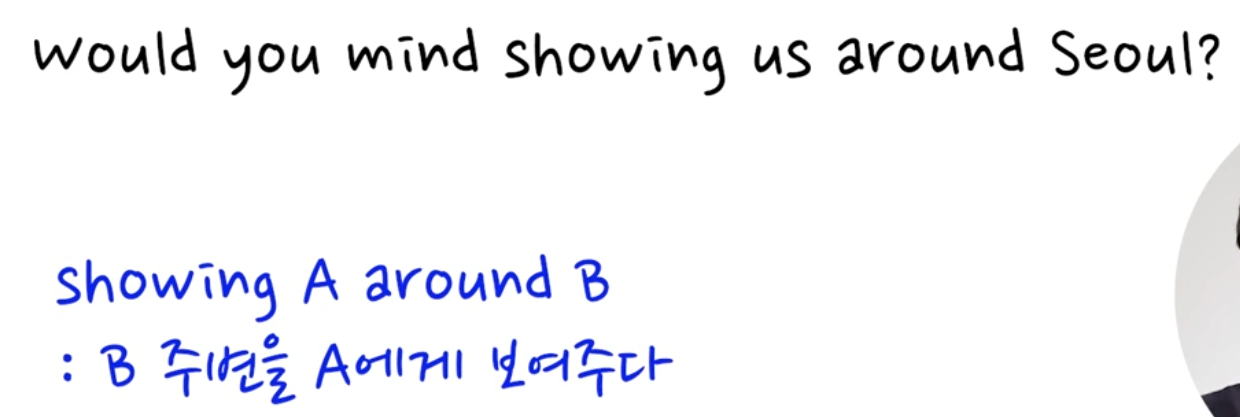 Would you mind showing us around Seoul?
showing A around B
: B 주변을 A에게 보여주다